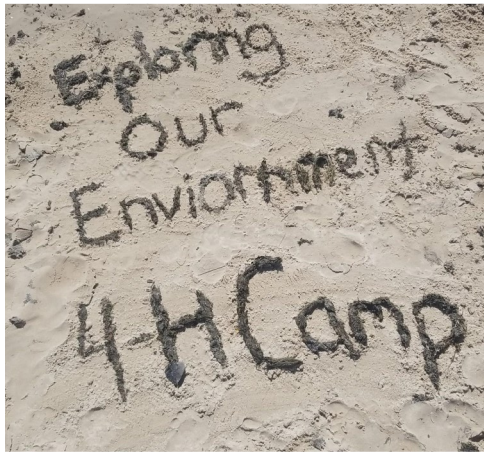 Exploring
Our
Enviornment
4-H Camp